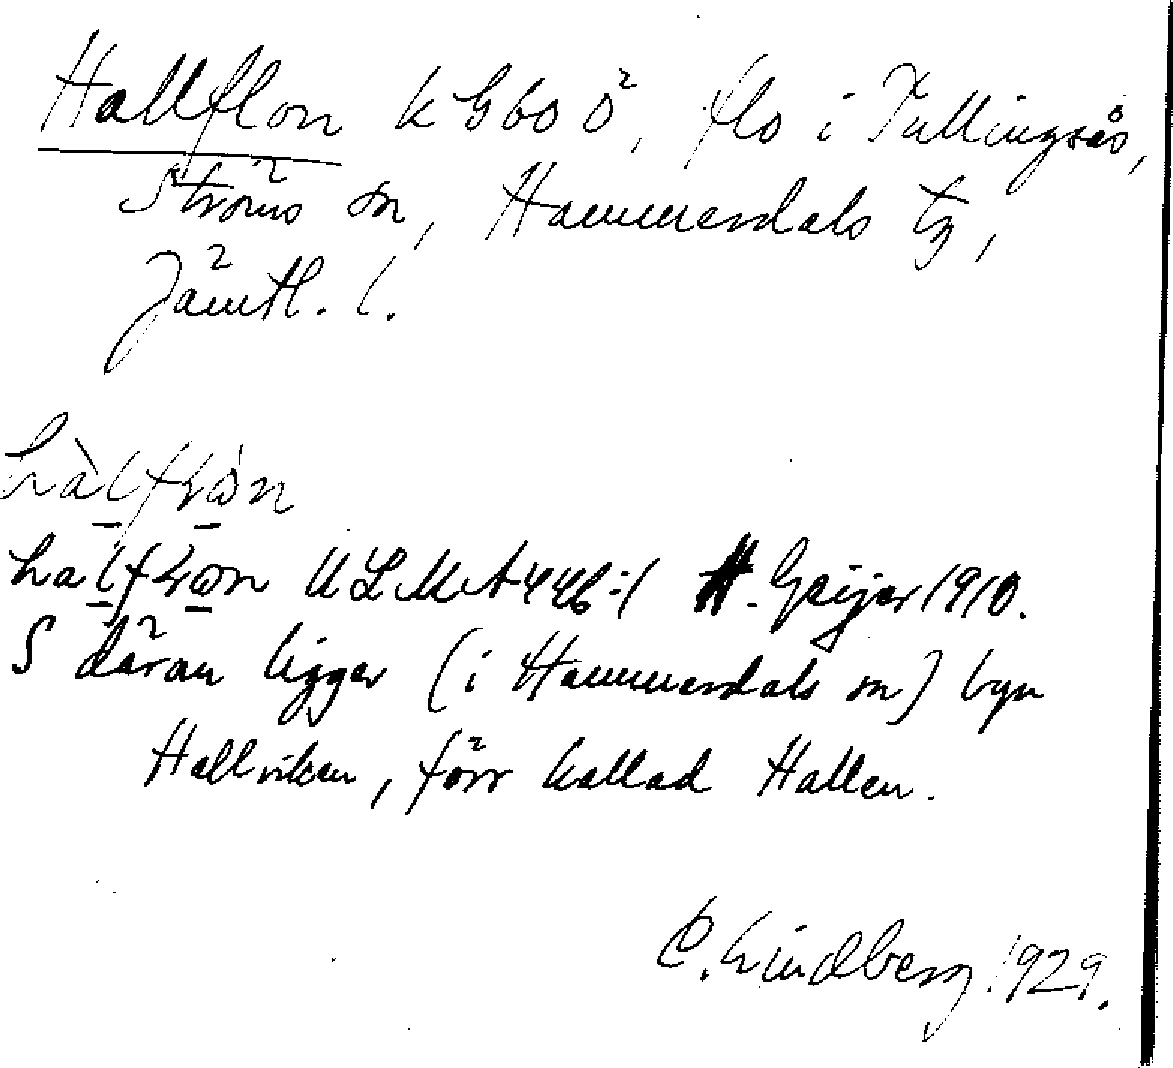 Hallflon k G60 Ö, flo i Tullingsås,
Ströms sn, Hammerdals tg,
Jämtl. l.
hàlfɽòn
halfɽon ULMA 446:1 H. Geijer 1910.
S däran ligger (i Hammerdals sn) byn
Hallviken, förr kallad Hallen.
C. Lindberg 1929.